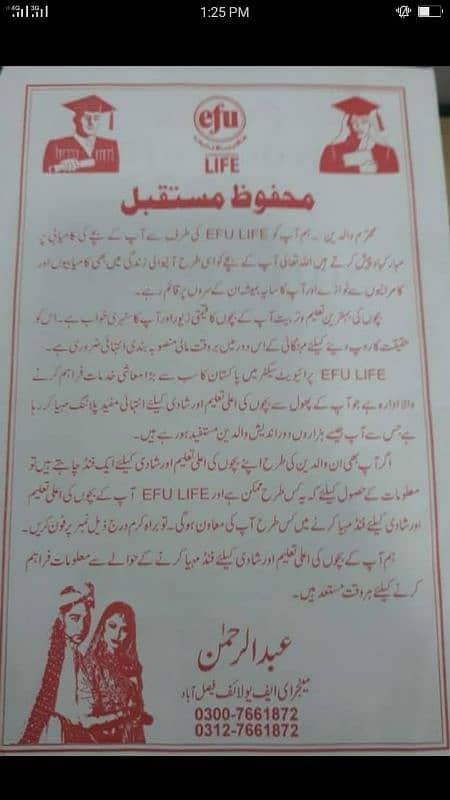 4G 3G
1:25 PM
efu
LIFE
محفوظ مستقبل
محترم والدین ۔ ہم آپ کو EFU LIFE کی طرف سے آپ کے بچے کی کامیابی پر
مبارکباد پیش کرتے ہیں اللہ تعالیٰ آپ کے بچے کو اسی طرح آنیوالی زندگی میں بھی کامیابیوں اور
کامرانیوں سے نوازے اور آپ کا سایہ ہمیشہ ان کے سروں پر قائم رہے ۔
بچوں کی بہترین تعلیم و تربیت آپ کے بچوں کا قیمتی زیور اور آپ کا سنہری خواب ہے ۔ اس کو
حقیقت کا روپ دینے کیلئے مہنگائی کے اس دور میں بروقت مالی منصوبہ بندی انتہائی ضروری ہے ۔
EFU LIFE پرائیویٹ سیکٹر میں پاکستان کا سب سے بڑا معاشی خدمات فراہم کرنے
والا ادارہ ہے جو آپ کے پھول سے بچوں کی اعلیٰ تعلیم اور شادی کیلئے انتہائی مفید پلاننگ مہیا کر رہا
ہے جس سے آپ جیسے ہزاروں دور اندیش والدین مستفید ہو رہے ہیں ۔
اگر آپ بھی ان والدین کی طرح اپنے بچوں کی اعلیٰ تعلیم اور شادی کیلئے ایک فنڈ چاہتے ہیں تو
معلومات کے حصول کیلئے کہ یہ کس طرح ممکن ہے اور EFU LIFE آپ کے بچوں کی اعلیٰ تعلیم
اور شادی کیلئے فنڈ مہیا کرنے میں کس طرح آپ کی معاون ہوگی ۔ تو براہ کرم درج ذیل نمبر پر فون کریں ۔
ہم آپ کے بچوں کی اعلیٰ تعلیم اور شادی کیلئے فنڈ مہیا کرنے کے حوالے سے معلومات فراہم
کرنے کیلئے ہر وقت مستعد ہیں ۔
عبدالرحمٰن
مینجر ای ایف یو لائف فیصل آباد
0300-7661872
0312-7661872